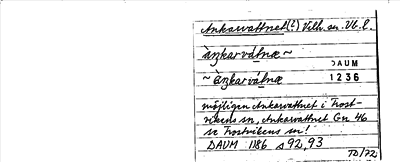 Ankarvattnet(?) Vilh. sn. Vb. l.
àŋkarvátnæ ~
DAUM
~ àŋkarvátnæ
1236
möjligen Ankarvattnet i Frost-
vikens sn, Ankarvattnet Gn 46
se Frostvikens sn!
DAUM 1186 s 92, 93
TD/72